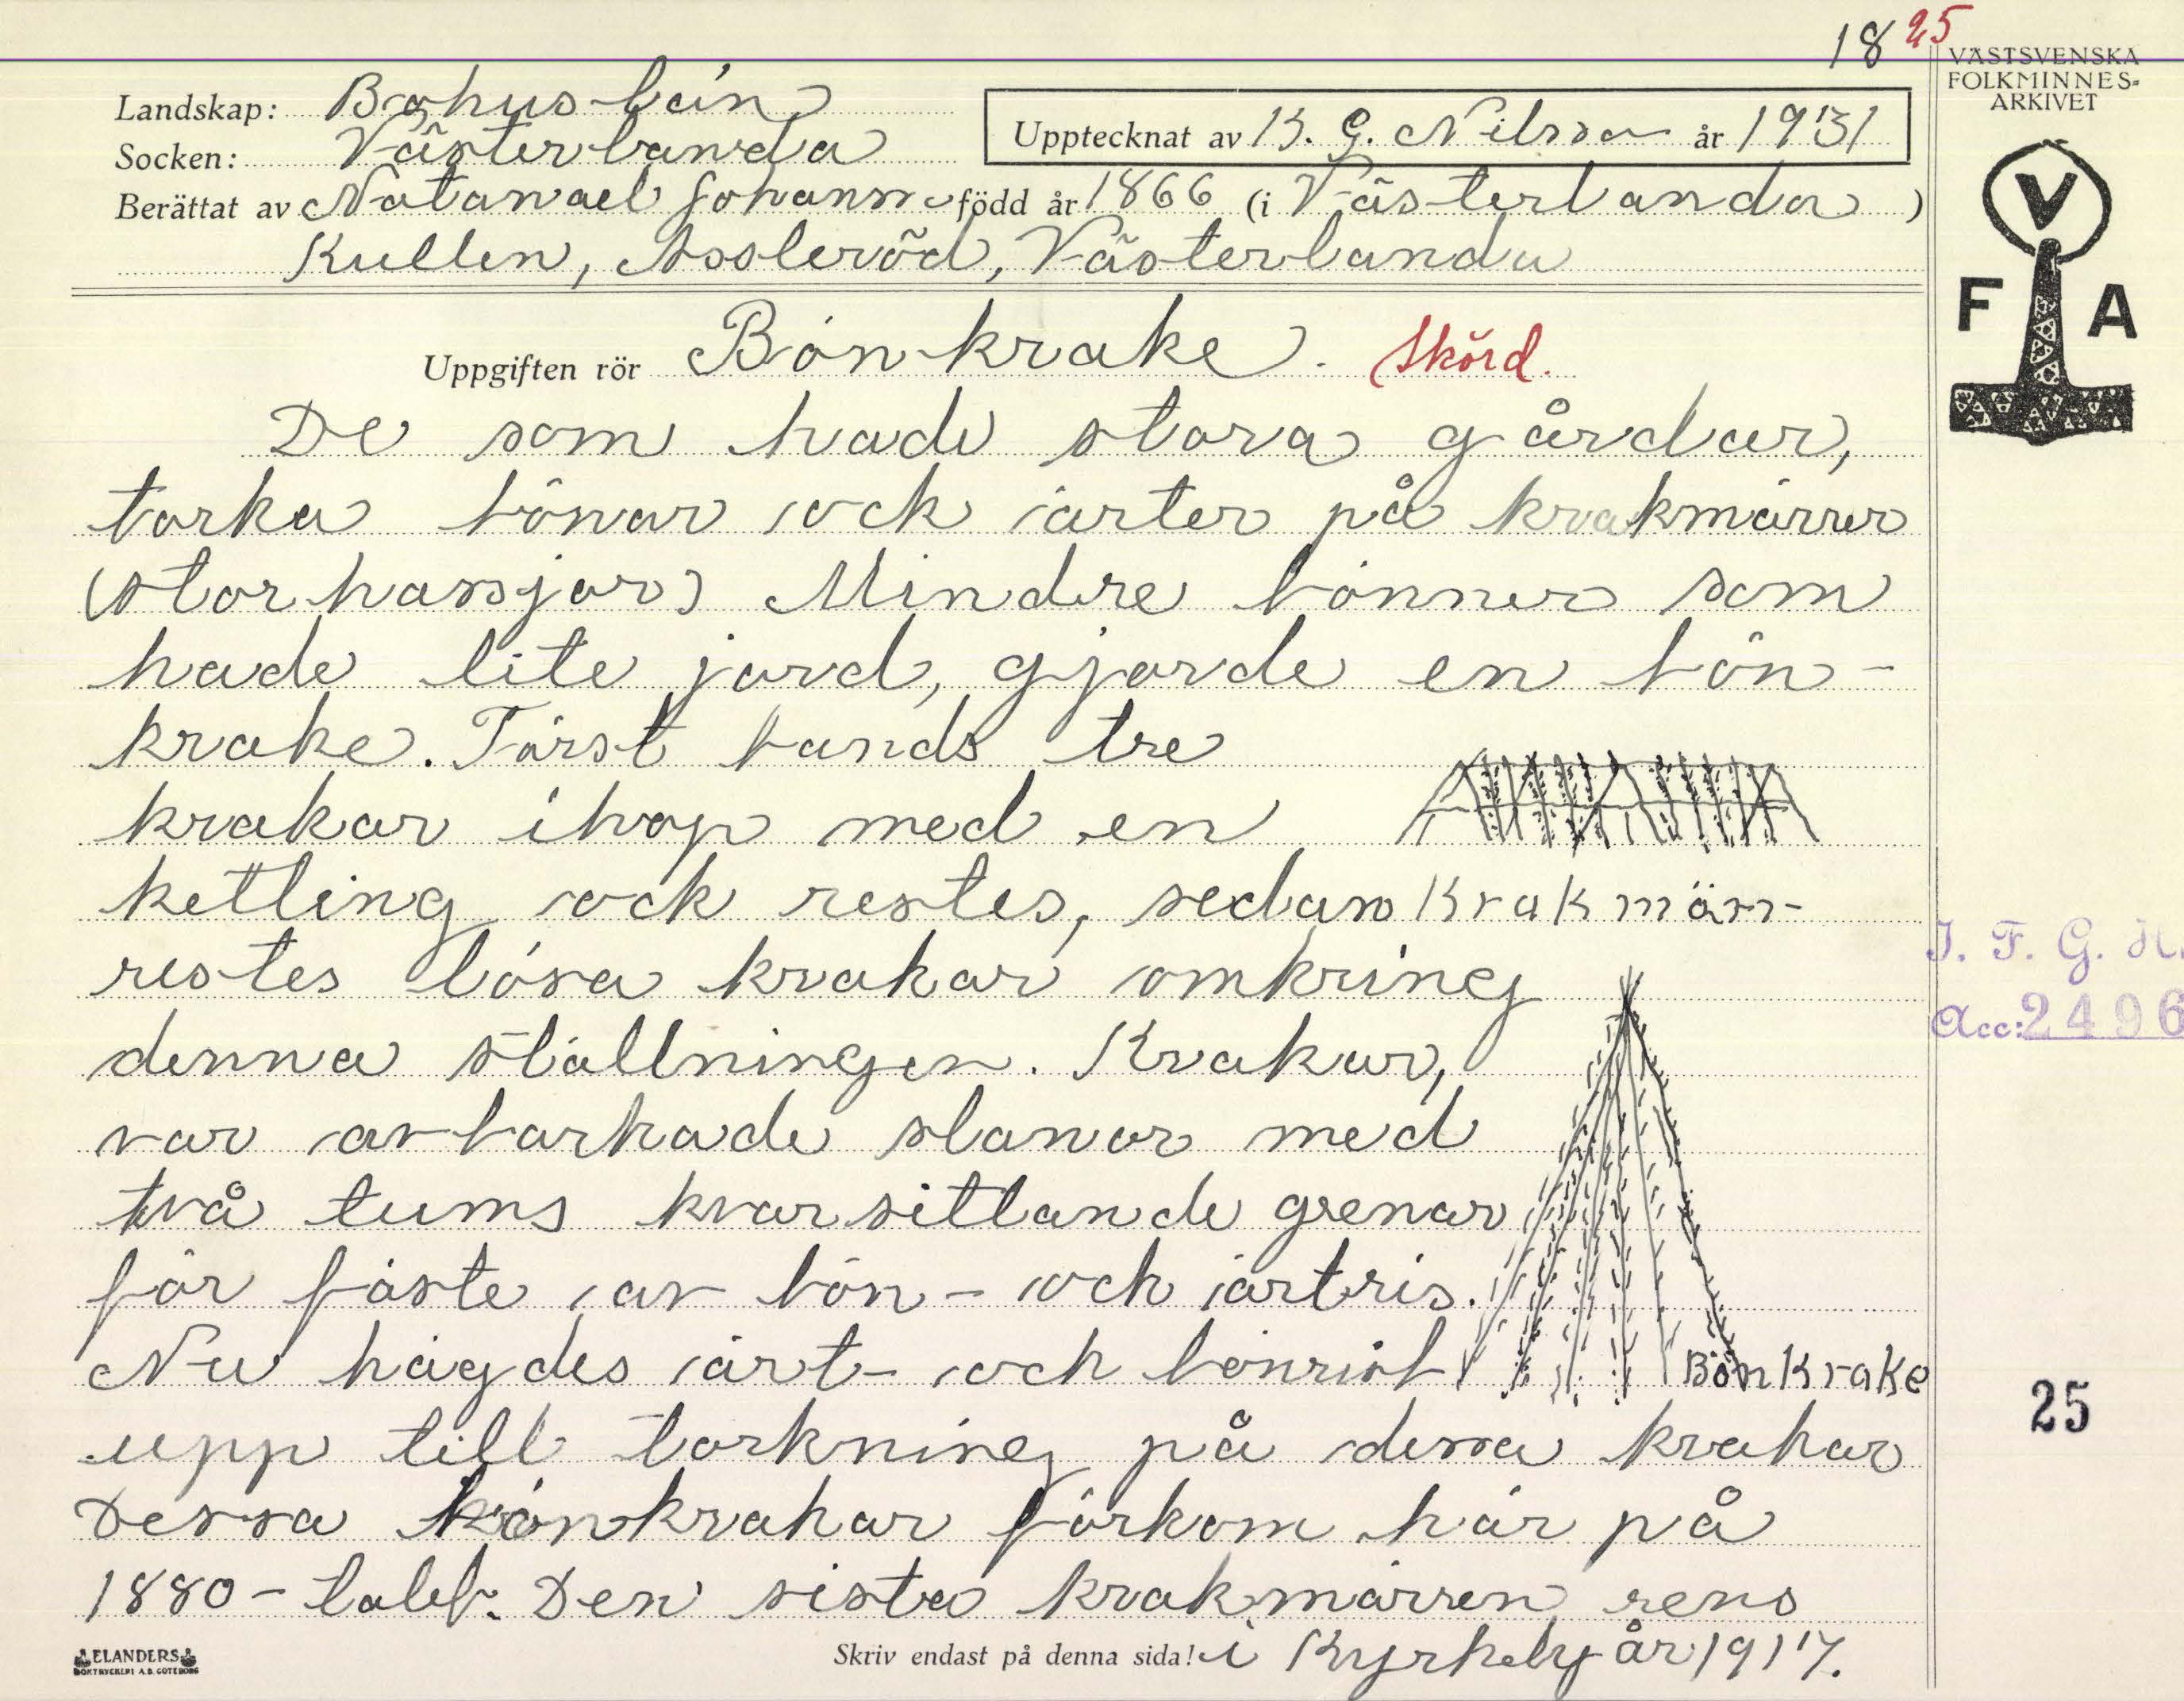 18 25
VÄSTSVENSKA
FOLKMINNES-
ARKIVET
Landskap: Bohuslän
Socken: Västerlanda
Upptecknat av K. G. Nilsson år 1931
Berättat av Natanael Johansson född år 1866 (i Västerlanda )
Kullen, Assleröd, Västerlanda
V
F A
Uppgiften rör Bönkrake. Skörd.
De som hade stora gårdar,
torka bönar och ärter på krakmärrer
(storhässjor) Mindre bönner som
hade lite jord, gjorde en bön-
krake. Först bands tre
krakar ihop med en
ketling och restes, sedan
Krakmärr
restes lösa krakar omkring
denna ställningen. Krakar,
var avbarkade slanor med
två tums kvarsittande grenar
för fäste av bön- och ärtris.
Nu hägdes ärt- och bönrist
Bönkrake
upp till torkning på dessa krakar
Dessa bönkrakar förkom här på
1880-talet. Den sista krakmärren sens
i Kyrkeby år 1917.
J. F. G. H.
Acc: 2496
25
ELANDERS
BOKTRYCKERI A.B. GÖTEBORG
Skriv endast på denna sida!